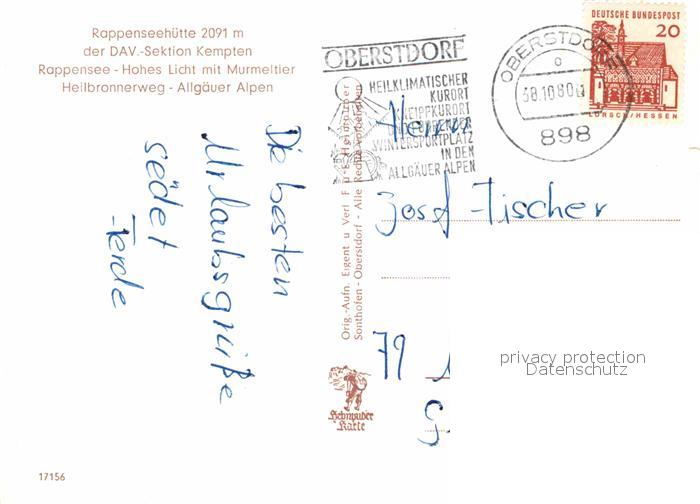 Rappenseehütte 2091 m
der DAV.-Sektion Kempten
Rappensee - Hohes Licht mit Murmeltier
Heilbronnerweg - Allgäuer Alpen
Die besten
Urlaubsgrüße
sedet
Ferde
Orig.-Aufn. Eigent u Verl F u E Heimhuber
Sonthofen - Oberstdorf - Alle Rechte vorbehalten
Heimhuber
Karte
17156
OBERSTDORF
HEILKLIMATISCHER
KURORT
KNEIPPKURORT
WINTERSPORTPLATZ
IN DEN
ALLGÄUER ALPEN
OBERSTDORF
898
DEUTSCHE BUNDESPOST
20
LORSCH/HESSEN
Herrn
Josef Fischer
79
privacy protection
Datenschutz